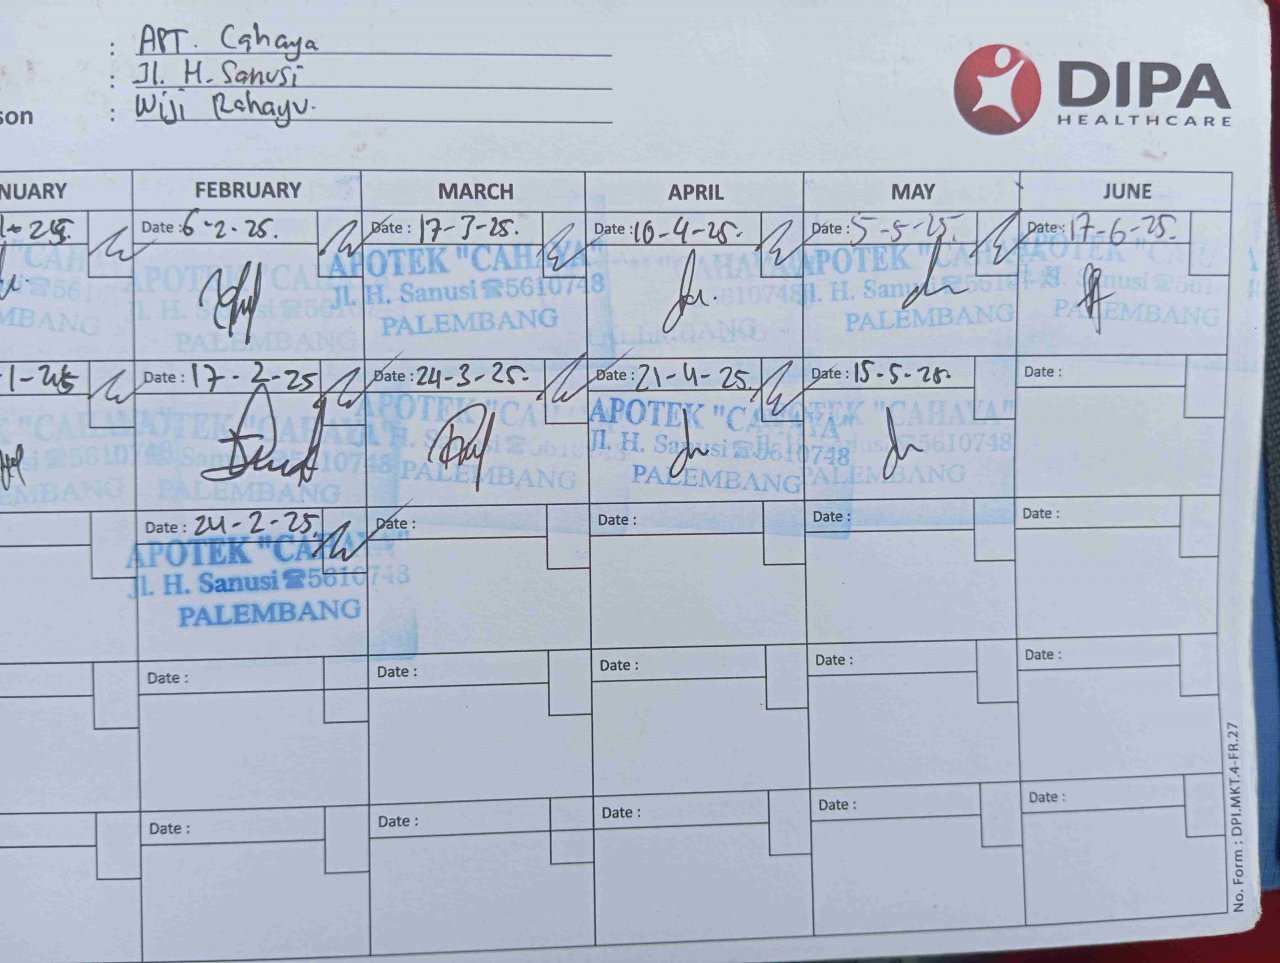 : APT. Cahaya
: Jl. H. Sanusi
son : Wiji Rahayu.
DIPA
HEALTHCARE
NUARY FEBRUARY MARCH APRIL MAY JUNE
Date : 6-2-25. Date : 17-3-25. Date : 10-4-25. Date : 5-5-25. Date : 17-6-25.
APOTEK "CAHAYA"
Jl. H. Sanusi ☎5610748
PALEMBANG
-1-25 Date : 17-2-25 Date : 24-3-25. Date : 21-4-25. Date : 15-5-25. Date :
APOTEK "CAHAYA"
Jl. H. Sanusi ☎5610748
PALEMBANG
Date : 24-2-25 Date : Date : Date : Date :
APOTEK "CAHAYA"
Jl. H. Sanusi ☎5610748
PALEMBANG
Date : Date : Date : Date : Date :
Date : Date : Date : Date : Date :
No. Form : DPI.MKT.4-FR.27